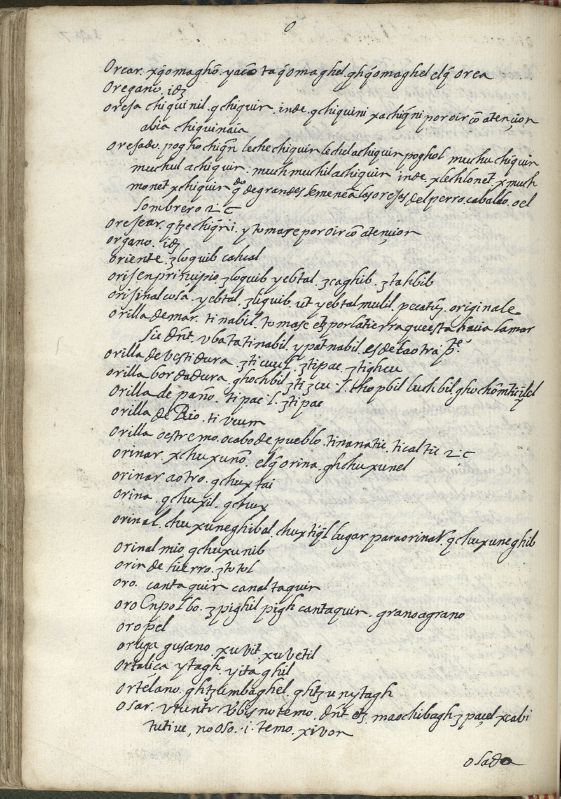 O
Orear. xq̃omaghõ. yacõ taq̃omaghel q̃hq̃omaghel elq̃ orea
Oregano. idẽ
oreja chiquinil. q̃chiquin. inde. q̃chiquini xachiq̃ni por oir cõ atençion
abia chiquinaia
orejado. poghochiq̃n lechechiquin lechelachiquin poghol muchuchiquin
muchul achiquin. much muchilachiquin inde xlechlonet x much
monet xchiquin q̃do de grandes se menea las orejas del perro, caballo, o el
sombrero 2. C
orejear. q̃tzechiq̃ni. y tomase por oir cõ atençion
organo. idẽ
oriente. zloquib cahcal
orijen principio zloquib yebtal. zcaghib. ztalelib
orijinal cosa. yebtal. zliquib ut yebtal mulil. pecatũ. originale
orilla de mar. tinabil. tomase etz̃ por la tierra que esta hacia la mar
sic dñt. vbatatinabil. y patnabil. es de la otra pte
orilla de vestidura. zticuul. ztipae ztighcu
orilla bordadura. ghochbil ztizcu l. theopbil luchbil ghochõmticilel
Orilla de paño. tipae l. ztipae
orilla del Rio. ti vcum
orilla o estremo. o cabo de pueblo. tinanatic. ticaltic 2. C
orinar. xchuxunõ. elq̃ orina. ghchuxunel
orinar a otro. q̃chuxtai
orina. q̃chuxil. q̃chux
orinal. chuxuneghibal chuxtiq̃l lugar para orinar q̃chuxuneghib
orinal mio q̃chuxunib
orin de hierro. ztotol
oro. cantaquin canaltaquin
oro en polbo. zpighil pigh cantaquin. grano a grano
oropel
oruga gusano. xuvit xuvetil
ortaliça ytagh yitaghil
ortelano. ghtzumbaghel. ghtz̃unytagh
osar. v̄tuntr v̄bis no temo. dñt etz̃. maochibagh z pauel xcabi
tutive, no oso. i. temo. xivon
osado